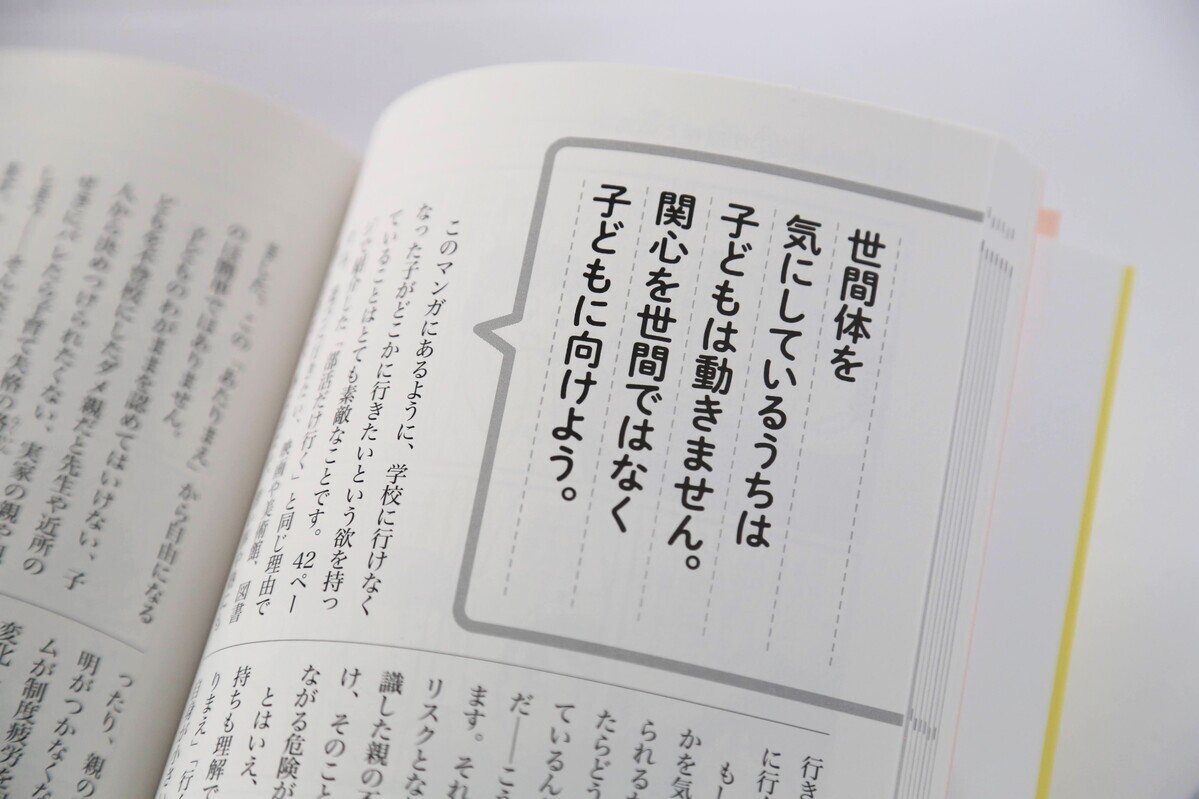 世間体を
気にしているうちは
子どもは動きません。
関心を世間ではなく
子どもに向けよう。
このマンガにあるように、学校に行けなく
なった子がどこかに行きたいという欲を持つ
ていることはとても素敵なことです。42ペー
ジで紹介した「部活だけ行く」と同じ理由で
映画や美術館、図書
行き
に行
もし
かを気
られるか
たらどう
ているん
だ――こう
ます。それ
リスクとな
識した親の不
け、そのこと
ながる危険が
とはいえ、
持ちも理解で
りまえ」「行
ました。この「あたりまえ」から自由になる
のは簡単ではありません。
子どものわがままを認めてはいけない、子
どもを不登校にしたダメ親だと先生や近所の
人から決めつけられたくない、実家の親や親
せきにバレたら子育て失格の
ったり、親の
明がつかなくな
ムが制度疲労を
変化